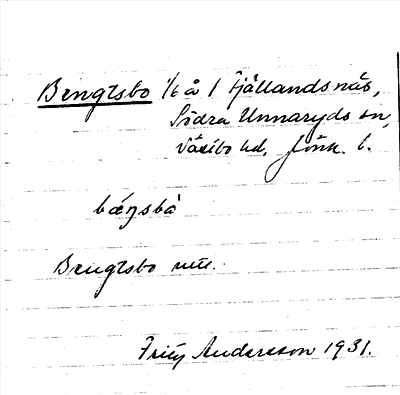 Bengtsbo 1/6 å 1 Fjällandsnäs,
Södra Unnaryds sn,
Västbo hd, Jönk. l.
bæŋsbò
Bengtsbo
Fritz Andersson 1931.